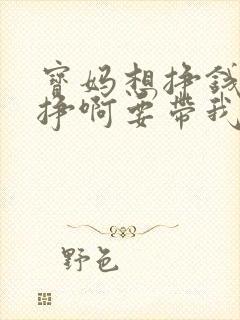 寶媽想掙錢
掙啊要帶我
野色